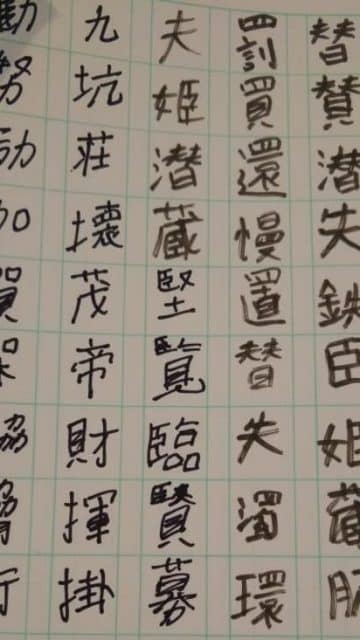 替賛潜失鉄臣姫蔵
罰買還慢置替失濁環
夫姫潜蔵堅覧臨賢募
九坑荘壊茂帝財揮掛
加賀協脅